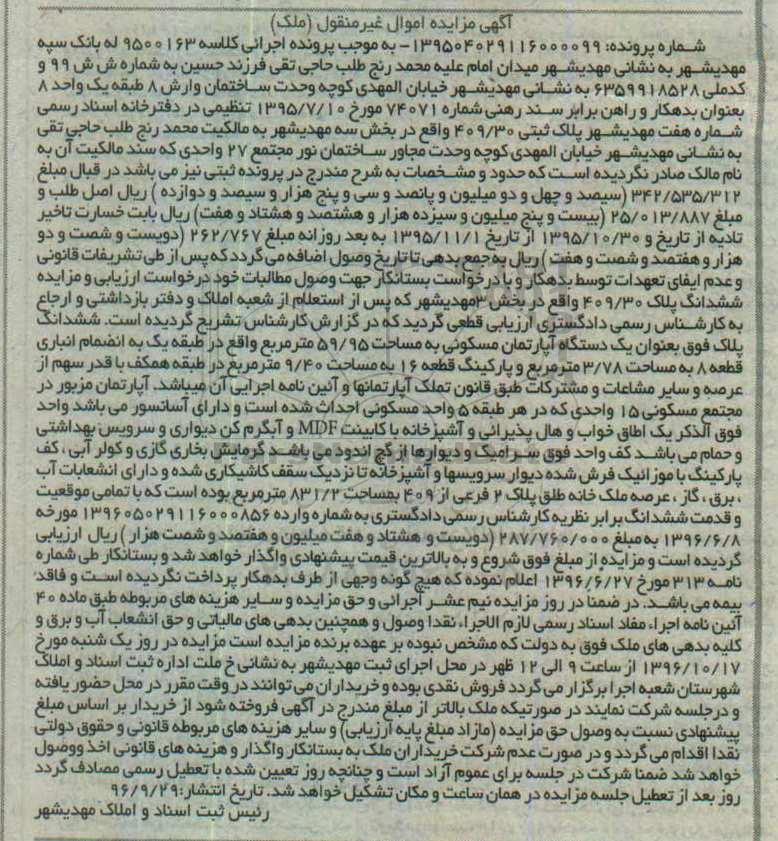 آگهی مزایده اموال غیرمنقول (ملک)
شماره پرونده: ۱۳۹۵۰۴۰۲۹۱۱۶۰۰۰۰۹۹- به موجب پرونده اجرائی کلاسه ۹۵۰۰۱۶۳ له بانک سپه
مهدیشهر به نشانی مهدیشهر میدان امام علیه محمد رنج طلب حاجی تقی فرزند حسین به شماره ش ش ۹۹ و
کدملی ۶۳۵۹۹۱۸۵۲۸ به نشانی مهدیشهر خیابان المهدی کوچه وحدت ساختمان وارش ۸ طبقه یک واحد ۸
بعنوان بدهکار و راهن برابر سند رهنی شماره ۷۴۰۷۱ مورخ ۱۳۹۵/۷/۱۰ تنظیمی در دفترخانه اسناد رسمی
شماره هفت مهدیشهر پلاک ثبتی ۴۰۹/۳۰ واقع در بخش سه مهدیشهر به مالکیت محمد رنج طلب حاجی تقی
به نشانی مهدیشهر خیابان المهدی کوچه وحدت مجاور ساختمان نور مجتمع ۲۷ واحدی که سند مالکیت آن به
نام مالک صادر نگردیده است که حدود و مشخصات به شرح مندرج در پرونده ثبتی نیز می باشد در قبال مبلغ
۳۴۲/۵۳۵/۳۱۲ (سیصد و چهل و دو میلیون و پانصد و سی و پنج هزار و سیصد و دوازده ) ریال اصل طلب و
مبلغ ۲۵/۰۱۳/۸۸۷ (بیست و پنج میلیون و سیزده هزار و هشتصد و هشتاد و هفت) ریال بابت خسارت تاخیر
تادیه از تاریخ و ۱۳۹۵/۱۰/۳۰ از تاریخ ۱۳۹۵/۱۱/۱ به بعد روزانه مبلغ ۲۶۲/۷۶۷ (دویست و شصت و دو
هزار و هفتصد و شصت و هفت ) ریال به جمع بدهی تا تاریخ وصول اضافه می گردد که پس از طی تشریفات قانونی
و عدم ایفای تعهدات توسط بدهکار و با درخواست بستانکار جهت وصول مطالبات خود درخواست ارزیابی و مزایده
ششدانگ پلاک ۴۰۹/۳۰ واقع در بخش ۳مهدیشهر که پس از استعلام از شعبه املاک و دفتر بازداشتی و ارجاع
به کارشناس رسمی دادگستری ارزیابی قطعی گردید که در گزارش کارشناس تشریح گردیده است. ششدانگ
پلاک فوق بعنوان یک دستگاه آپارتمان مسکونی به مساحت ۵۹/۹۵ مترمربع واقع در طبقه یک به انضمام انباری
قطعه ۸ به مساحت ۳/۷۸ مترمربع و پارکینگ قطعه ۱۶ به مساحت ۹/۴۰ مترمربع در طبقه همکف با قدر سهم از
عرصه و سایر مشاعات و مشترکات طبق قانون تملک آپارتمانها و آئین نامه اجرایی آن میباشد. آپارتمان مزبور در
مجتمع مسکونی ۱۵ واحدی که در هر طبقه ۵ واحد مسکونی احداث شده است و دارای آسانسور می باشد واحد
فوق الذکر یک اطاق خواب و هال پذیرائی و آشپزخانه با کابینت MDF و آبگرم کن دیواری و سرویس بهداشتی
و حمام می باشد کف واحد فوق سرامیک و دیوارها از گچ اندود می باشد گرمایش بخاری گازی و کولر آبی ، کف
پارکینگ با موزائیک فرش شده دیوار سرویسها و آشپزخانه تا نزدیک سقف کاشیکاری شده و دارای انشعابات آب
، برق ، گاز ، عرصه ملک خانه طلق پلاک ۲ فرعی از ۴۰۹ بمساحت ۸۳۱/۲ مترمربع بوده است که با تمامی موقعیت
و قدمت ششدانگ برابر نظریه کارشناس رسمی دادگستری به شماره وارده ۱۳۹۶۰۵۰۲۹۱۱۶۰۰۰۸۵۶ مورخه
۱۳۹۶/۶/۸ به مبلغ ۲۸۷/۷۶۰/۰۰۰ (دویست و هشتاد و هفت میلیون و هفتصد و شصت هزار ) ریال ارزیابی
گردیده است و مزایده از مبلغ فوق شروع و به بالاترین قیمت پیشنهادی واگذار خواهد شد و بستانکار طی شماره
نامه ۳۱۳ مورخ ۱۳۹۶/۶/۲۷ اعلام نموده که هیچ گونه وجهی از طرف بدهکار پرداخت نگردیده است و فاقد
بیمه می باشد. در ضمنا در روز مزایده نیم عشر اجرائی و حق مزایده و سایر هزینه های مربوطه طبق ماده ۴۰
آئین نامه اجراء مفاد اسناد رسمی لازم الاجراء نقدا وصول و همچنین بدهی های مالیاتی و حق انشعاب آب و برق و
کلیه بدهی های ملک فوق به دولت که مشخص نبوده بر عهده برنده مزایده است مزایده در روز یک شنبه مورخ
۱۳۹۶/۱۰/۱۷ از ساعت ۹ الی ۱۲ ظهر در محل اجرای ثبت مهدیشهر به نشانی خ ملت اداره ثبت اسناد و املاک
شهرستان شعبه اجرا برگزار می گردد فروش نقدی بوده و خریداران می توانند در وقت مقرر در محل حضور یافته
و درجلسه شرکت نمایند در صورتیکه ملک بالاتر از مبلغ مندرج در آگهی فروخته شود از خریدار بر اساس مبلغ
پیشنهادی نسبت به وصول حق مزایده (مازاد مبلغ پایه ارزیابی) و سایر هزینه های مربوطه قانونی و حقوق دولتی
نقدا اقدام می گردد و در صورت عدم شرکت خریداران ملک به بستانکار واگذار و هزینه های قانونی اخذ ووصول
خواهد شد ضمنا شرکت در جلسه برای عموم آزاد است و چنانچه روز تعیین شده با تعطیل رسمی مصادف گردد
روز بعد از تعطیل جلسه مزایده در همان ساعت و مکان تشکیل خواهد شد. تاریخ انتشار:۹۶/۹/۲۹
رئیس ثبت اسناد و املاک مهدیشهر